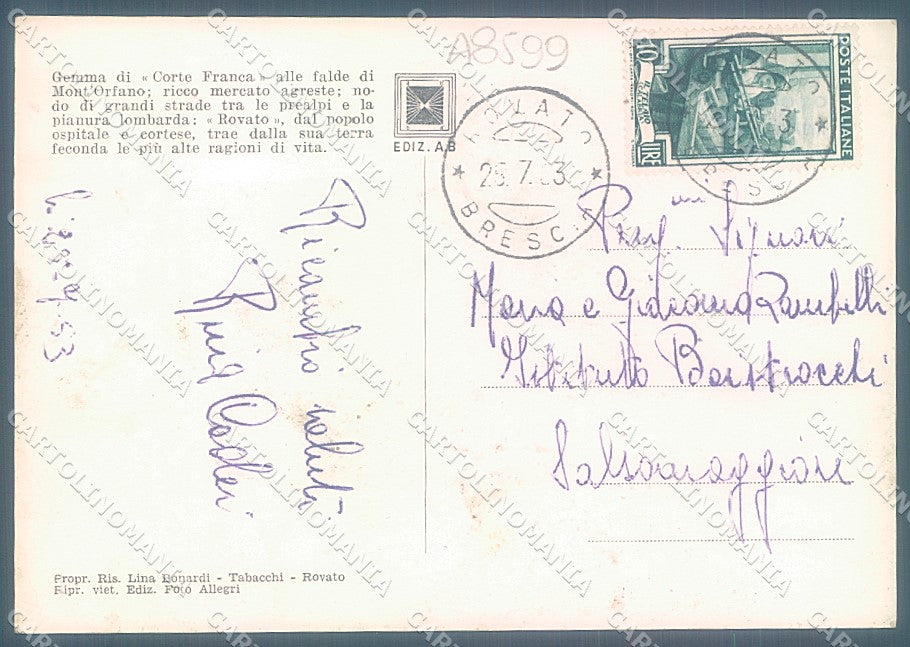 A8599
Gemma di « Corte Franca » alle falde di
Mont'Orfano; ricco mercato agreste; no-
do di grandi strade tra le prealpi e la
pianura lombarda: « Rovato », dal popolo
ospitale e cortese, trae dalla sua terra
feconda le più alte ragioni di vita.
EDIZ. A.B
ROVATO
25.7.53
BRESCIA
10
LIRE
POSTE ITALIANE
Signori
Maria e Giacomo Rambelli
Istituto Bertocchi
Salsomaggiore
Ricordi saluti
53
Propr. Ris. Lina Bonardi - Tabacchi - Rovato
Ripr. viet. Ediz. Foto Allegri
CARTOLINOMANIA